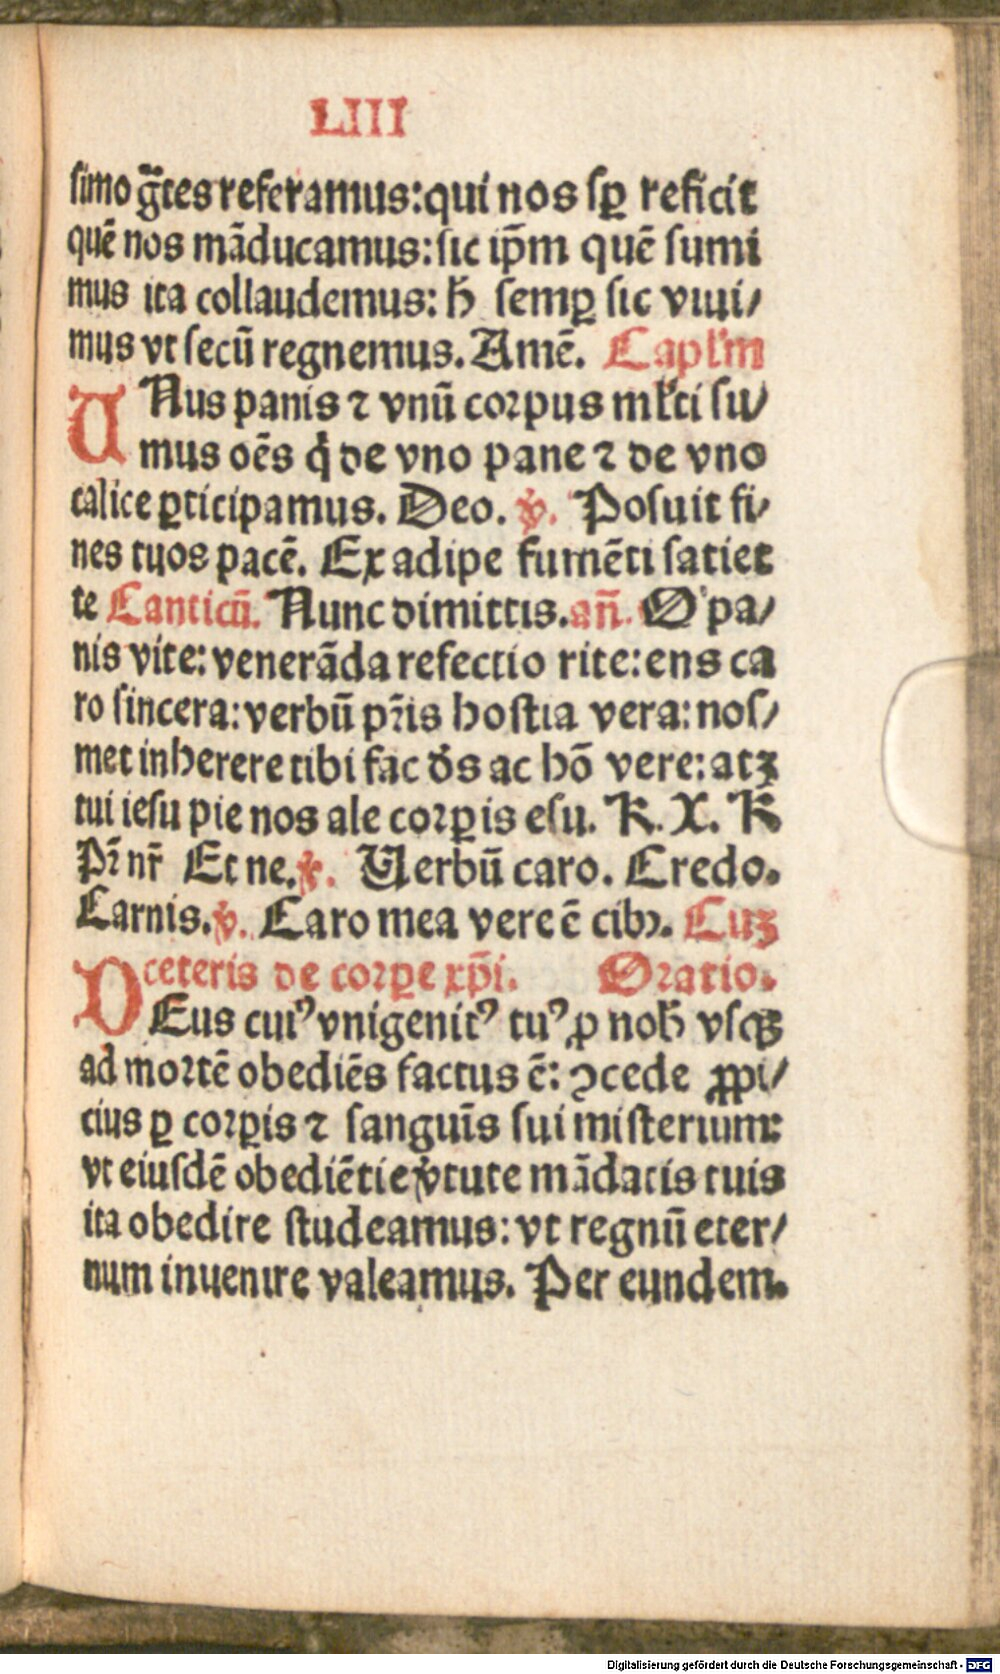 LIII
simo gr̄tes referamus: qui nos sꝑ reficit
quē nos māducamus: sic ip̄m quē sumi
mus ita collaudemus: h̄ semꝑ sic viui/
mus vt secū regnemus. Amē. Caplm̄
UNus panis ⁊ vnū corpus ml̄ti su/
mus oēs q̇ de vno pane ⁊ de vno
calice ꝑticipamus. Deo. ℣. Posuit fi/
nes tuos pacē. Ex adipe frumēti satiet
te Canticū. Nunc dimittis. an̄. O pa/
nis vite: venerāda refectio rite: ens ca
ro sincera: verbū pr̄is hostia vera: nos/
met inherere tibi fac ds̄ ac hō vere: atꝫ
tui iesu pie nos ale corꝑis esu. K. X. K
Pr̄ nr̄ Et ne. ℣. Uerbū caro. Credo.
Carnis. ℣. Caro mea vere ē cibꝰ. Cuꝫ
ceteris de corꝑe xp̄i. Oratio.
DEus cuiꝰ vnigenitꝰ tuꝰ ꝓ nob̄ vsqꝫ
ad mortē obediēs factus ē: ꝯcede ꝓpi/
cius ꝑ corꝑis ⁊ sanguīs sui misterium:
vt eiusdē obediētie v̄tute mādatis tuis
ita obedire studeamus: vt regnū eter/
num inuenire valeamus. Per eundem.
Digitalisierung gefördert durch die Deutsche Forschungsgemeinschaft - DFG